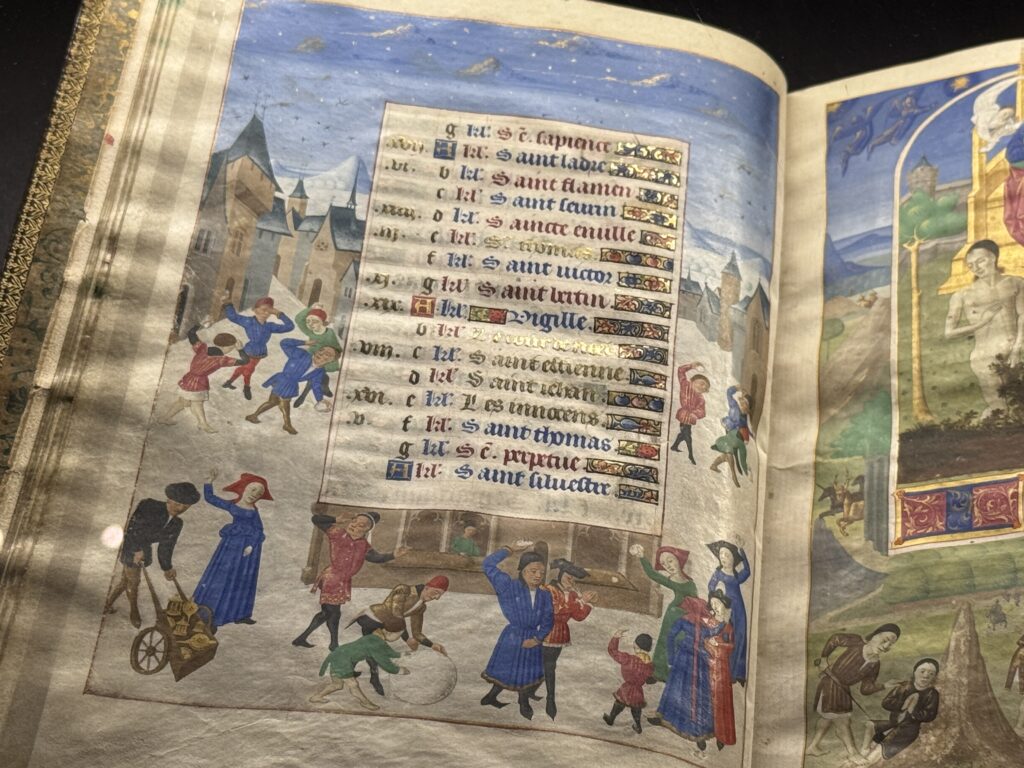 g kl' S c̄. sapience
.xvii. A kl' Saint ladre
.vi. b kl' Saint flamen
c kl' Saint seurin
.xiiii. d kl' Saincte
.iii. e kl' thomas
f kl' Saint victor
.xi. g kl' Saint bertin
.xix. A kl' Vigille.
b kl' Le iour de
.viii. c kl' Saint estienne
d kl' Saint iehan
.xvi. e kl' Les innocens
.v. f kl' Saint thomas
g kl' S c̄. perpetue
A kl' Saint silvestre